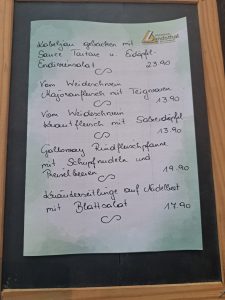 Kabeljau gebacken mit
Sauce Tartare u. Erdäpfl-
Endiviensalat 23.90
Vom Weideschwein
Majoranfleisch mit Teigwaren
13.90
Vom Weideschwein
Krautfleisch mit Salzerdäpfl
13.90
Galloway Rindfleischpfanne
mit Schupfnudeln und
Preiselbeeren 19.90
Kräuterseitlinge auf Nudelbett
mit Blattsalat 17.90